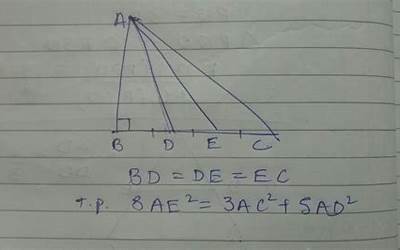 A
B D E C
BD = DE = EC
T.P. 8AE² = 3AC² + 5AD²